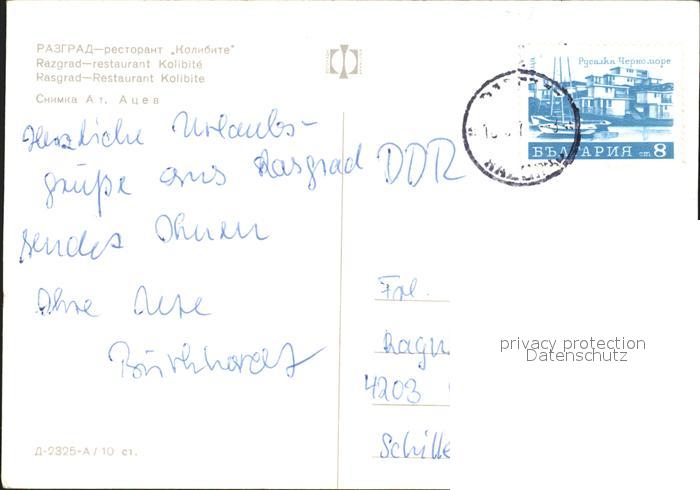 РАЗГРАД—ресторант „Колибите"
Razgrad—restaurant Kolibité
Rasgrad—Restaurant Kolibite
Снимка Ат. Ацев
Herzliche Urlaubs-
grüße aus Rasgrad
sendet Ihnen
Ihre
Burkhardt
Д-2325-А/10 ст.
Русалка Черноморе
БЪЛГАРИЯ ст 8
DDR
Frl.
Ragn
4203
Schille
privacy protection
Datenschutz